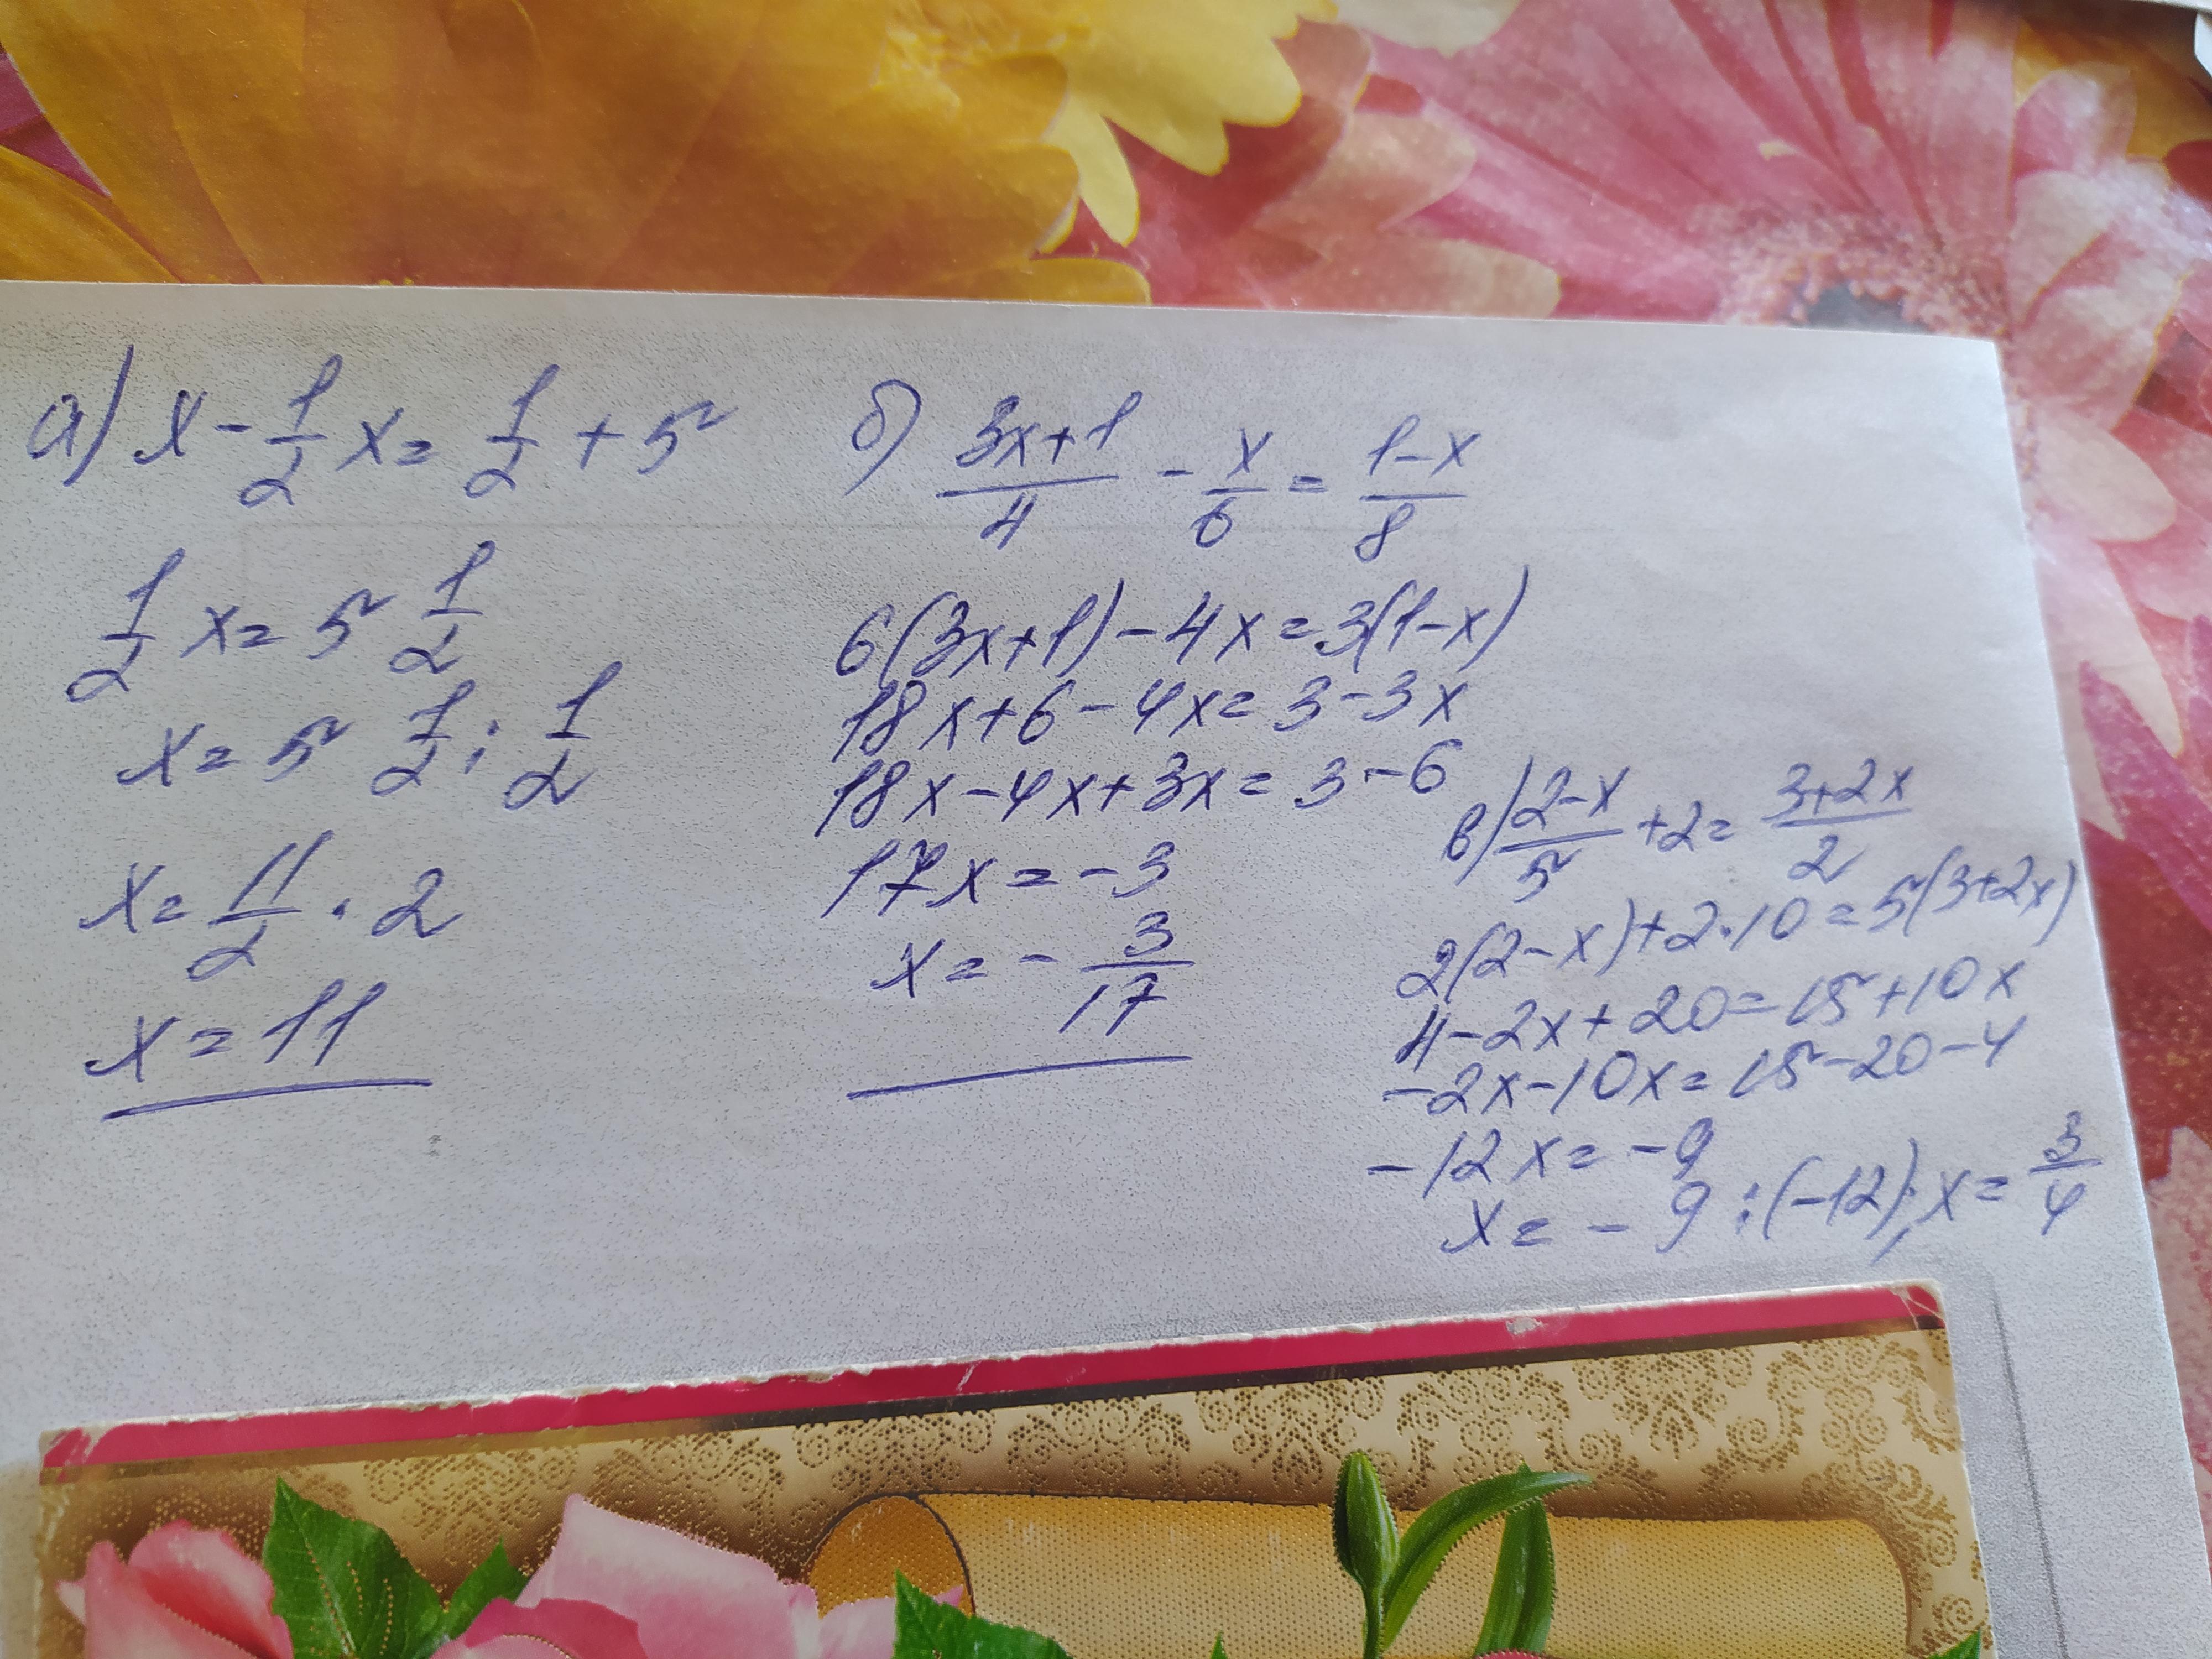 а) x - 1/2 x = 1/2 + 5
1/2 x = 5 1/2
x = 5 1/2 : 1/2
x = 11/2 · 2
x = 11
б) (3x+1)/4 - x/6 = (1-x)/8
6(3x+1) - 4x = 3(1-x)
18x + 6 - 4x = 3 - 3x
18x - 4x + 3x = 3 - 6
17x = -3
x = - 3/17
в) (2-x)/5 + 2 = (3+2x)/2
2(2-x) + 2·10 = 5(3+2x)
4 - 2x + 20 = 15 + 10x
-2x - 10x = 15 - 20 - 4
-12x = -9
x = -9 : (-12); x = 3/4